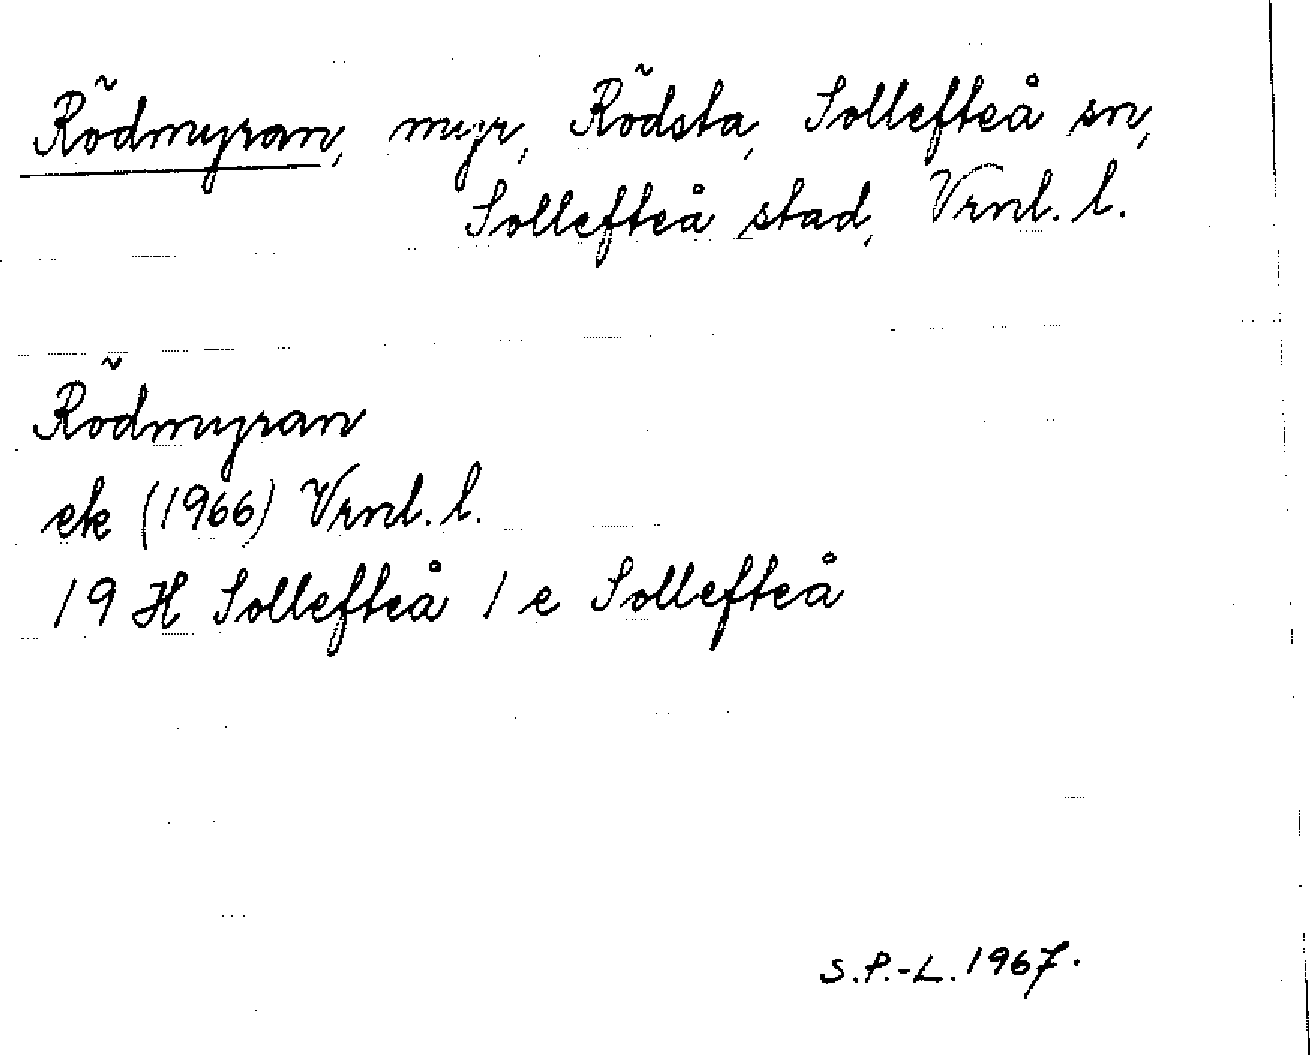 Rödmyran, myr, Rödsta, Sollefteå sn,
Sollefteå stad, Vrnl. l.
Rödmyran
ek (1966) Vrnl. l.
19 H Sollefteå 1 e Sollefteå
S.P.-L. 1967.